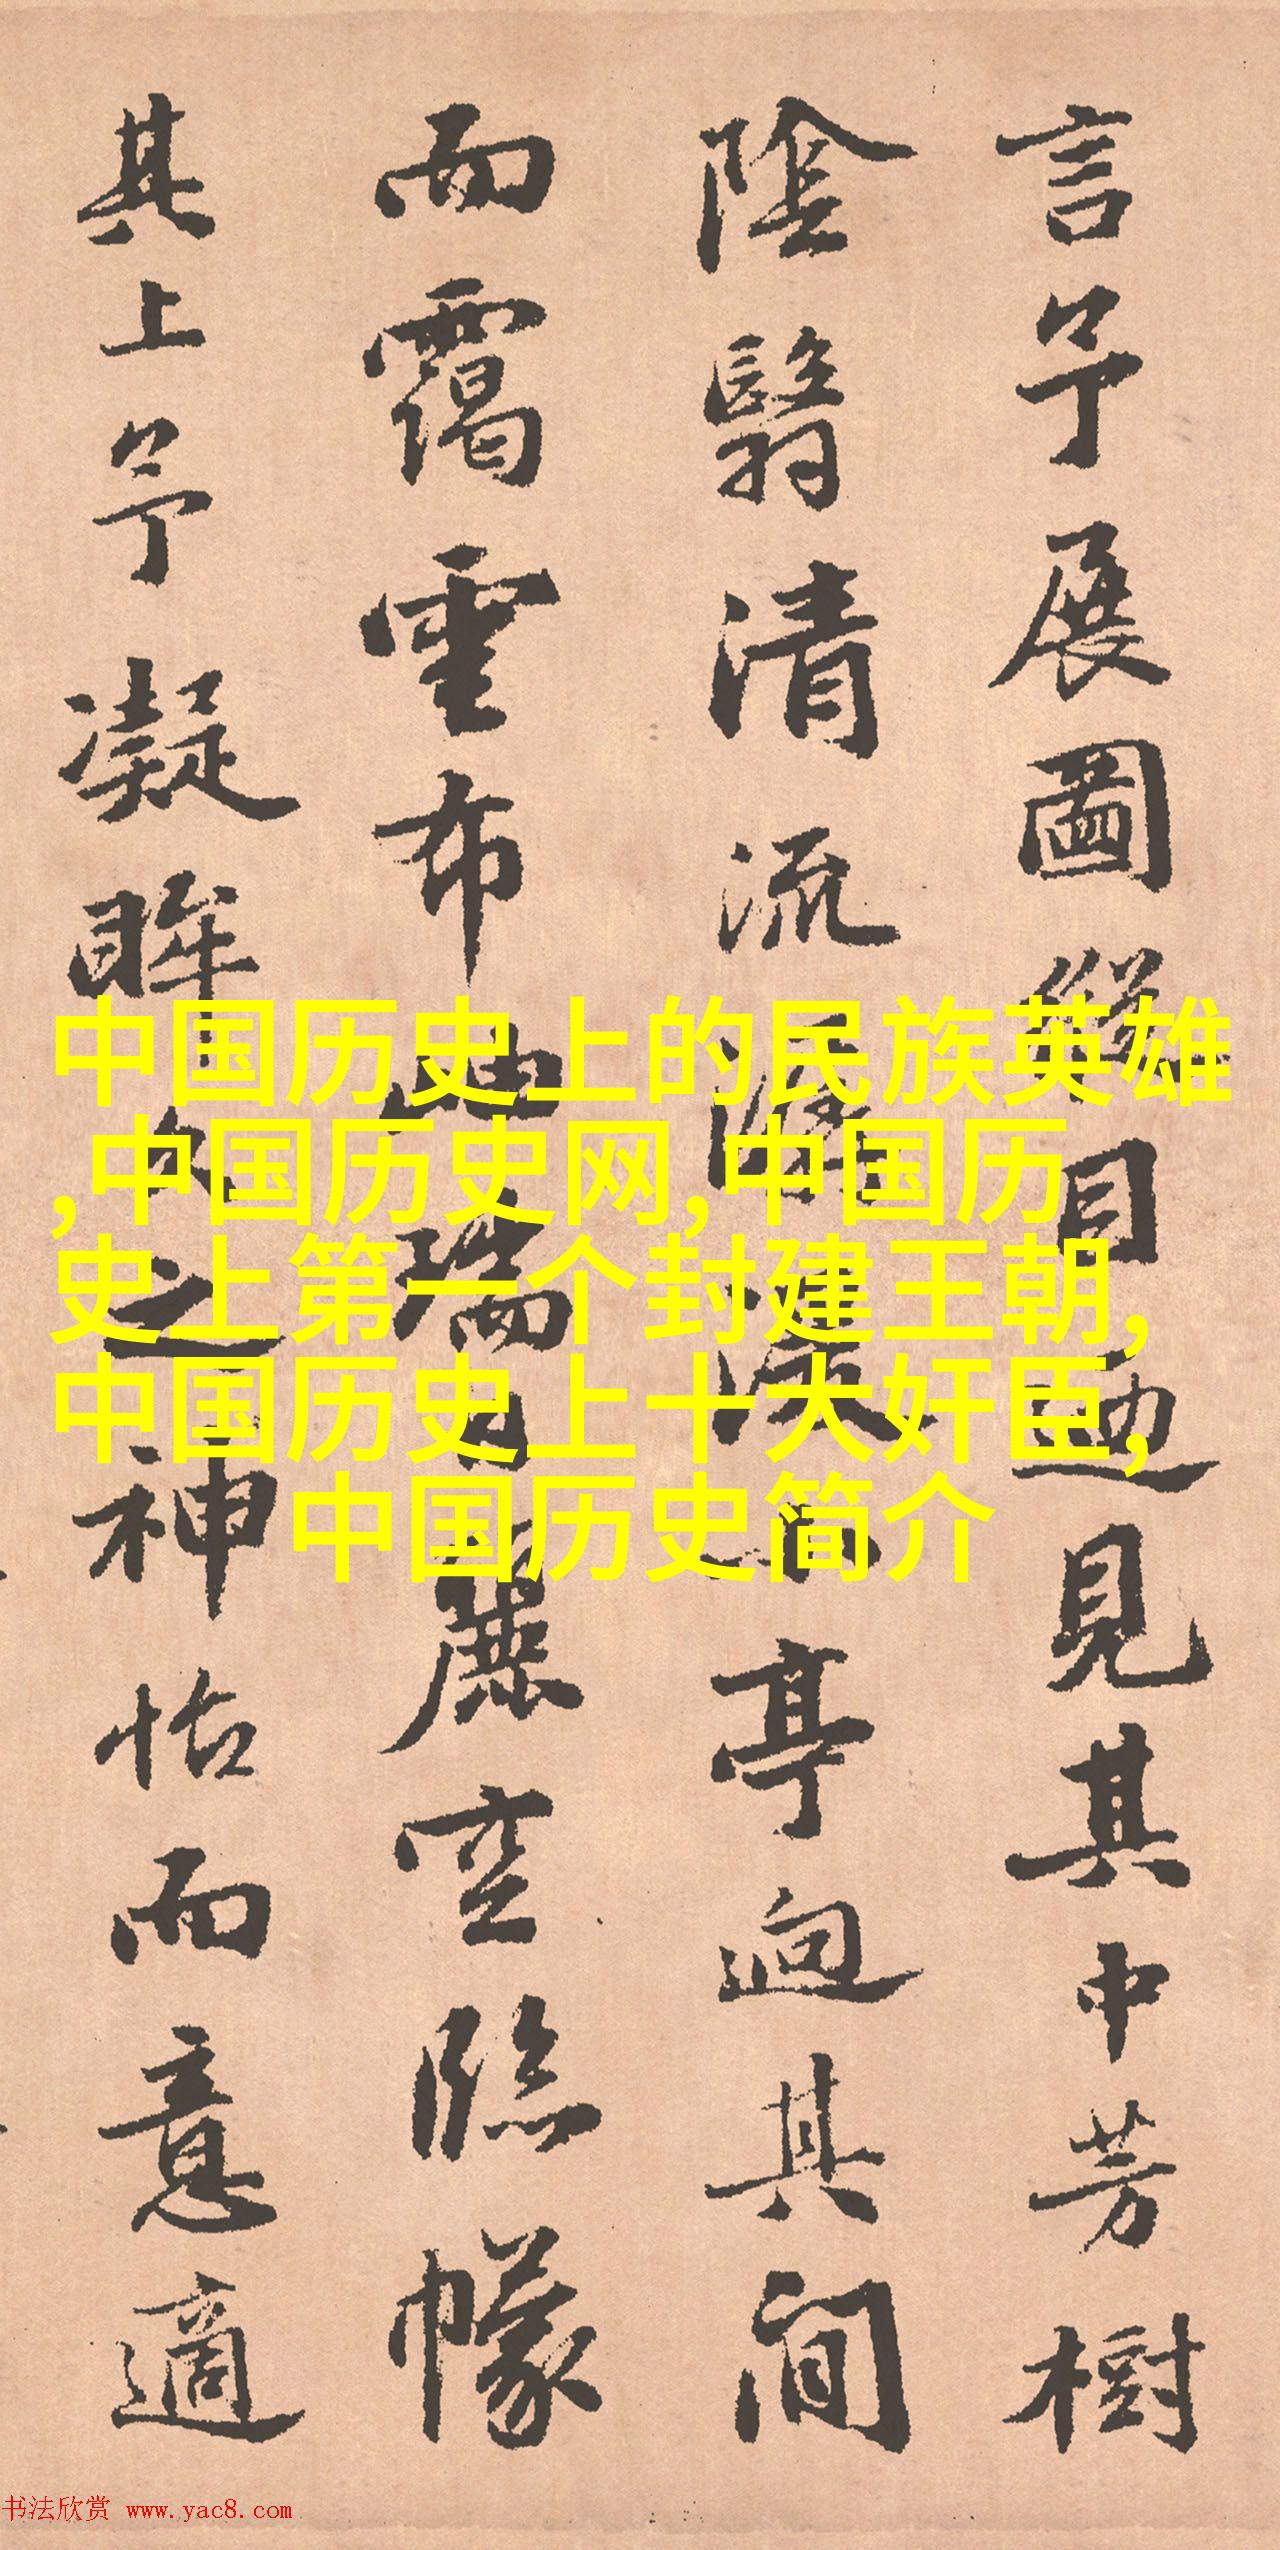 言予展圖縱目迺見其中芳樹
陰翳清流亭迥其間
而靄雲布地瑞日麗空臨幪
其上予凝眸久之神怡而意適
中国历史上的民族英雄
,中国历史网,中国历
史上第一个封建王朝,
中国历史上十大奸臣,
中国历史简介
书法欣赏 www.yac8.com